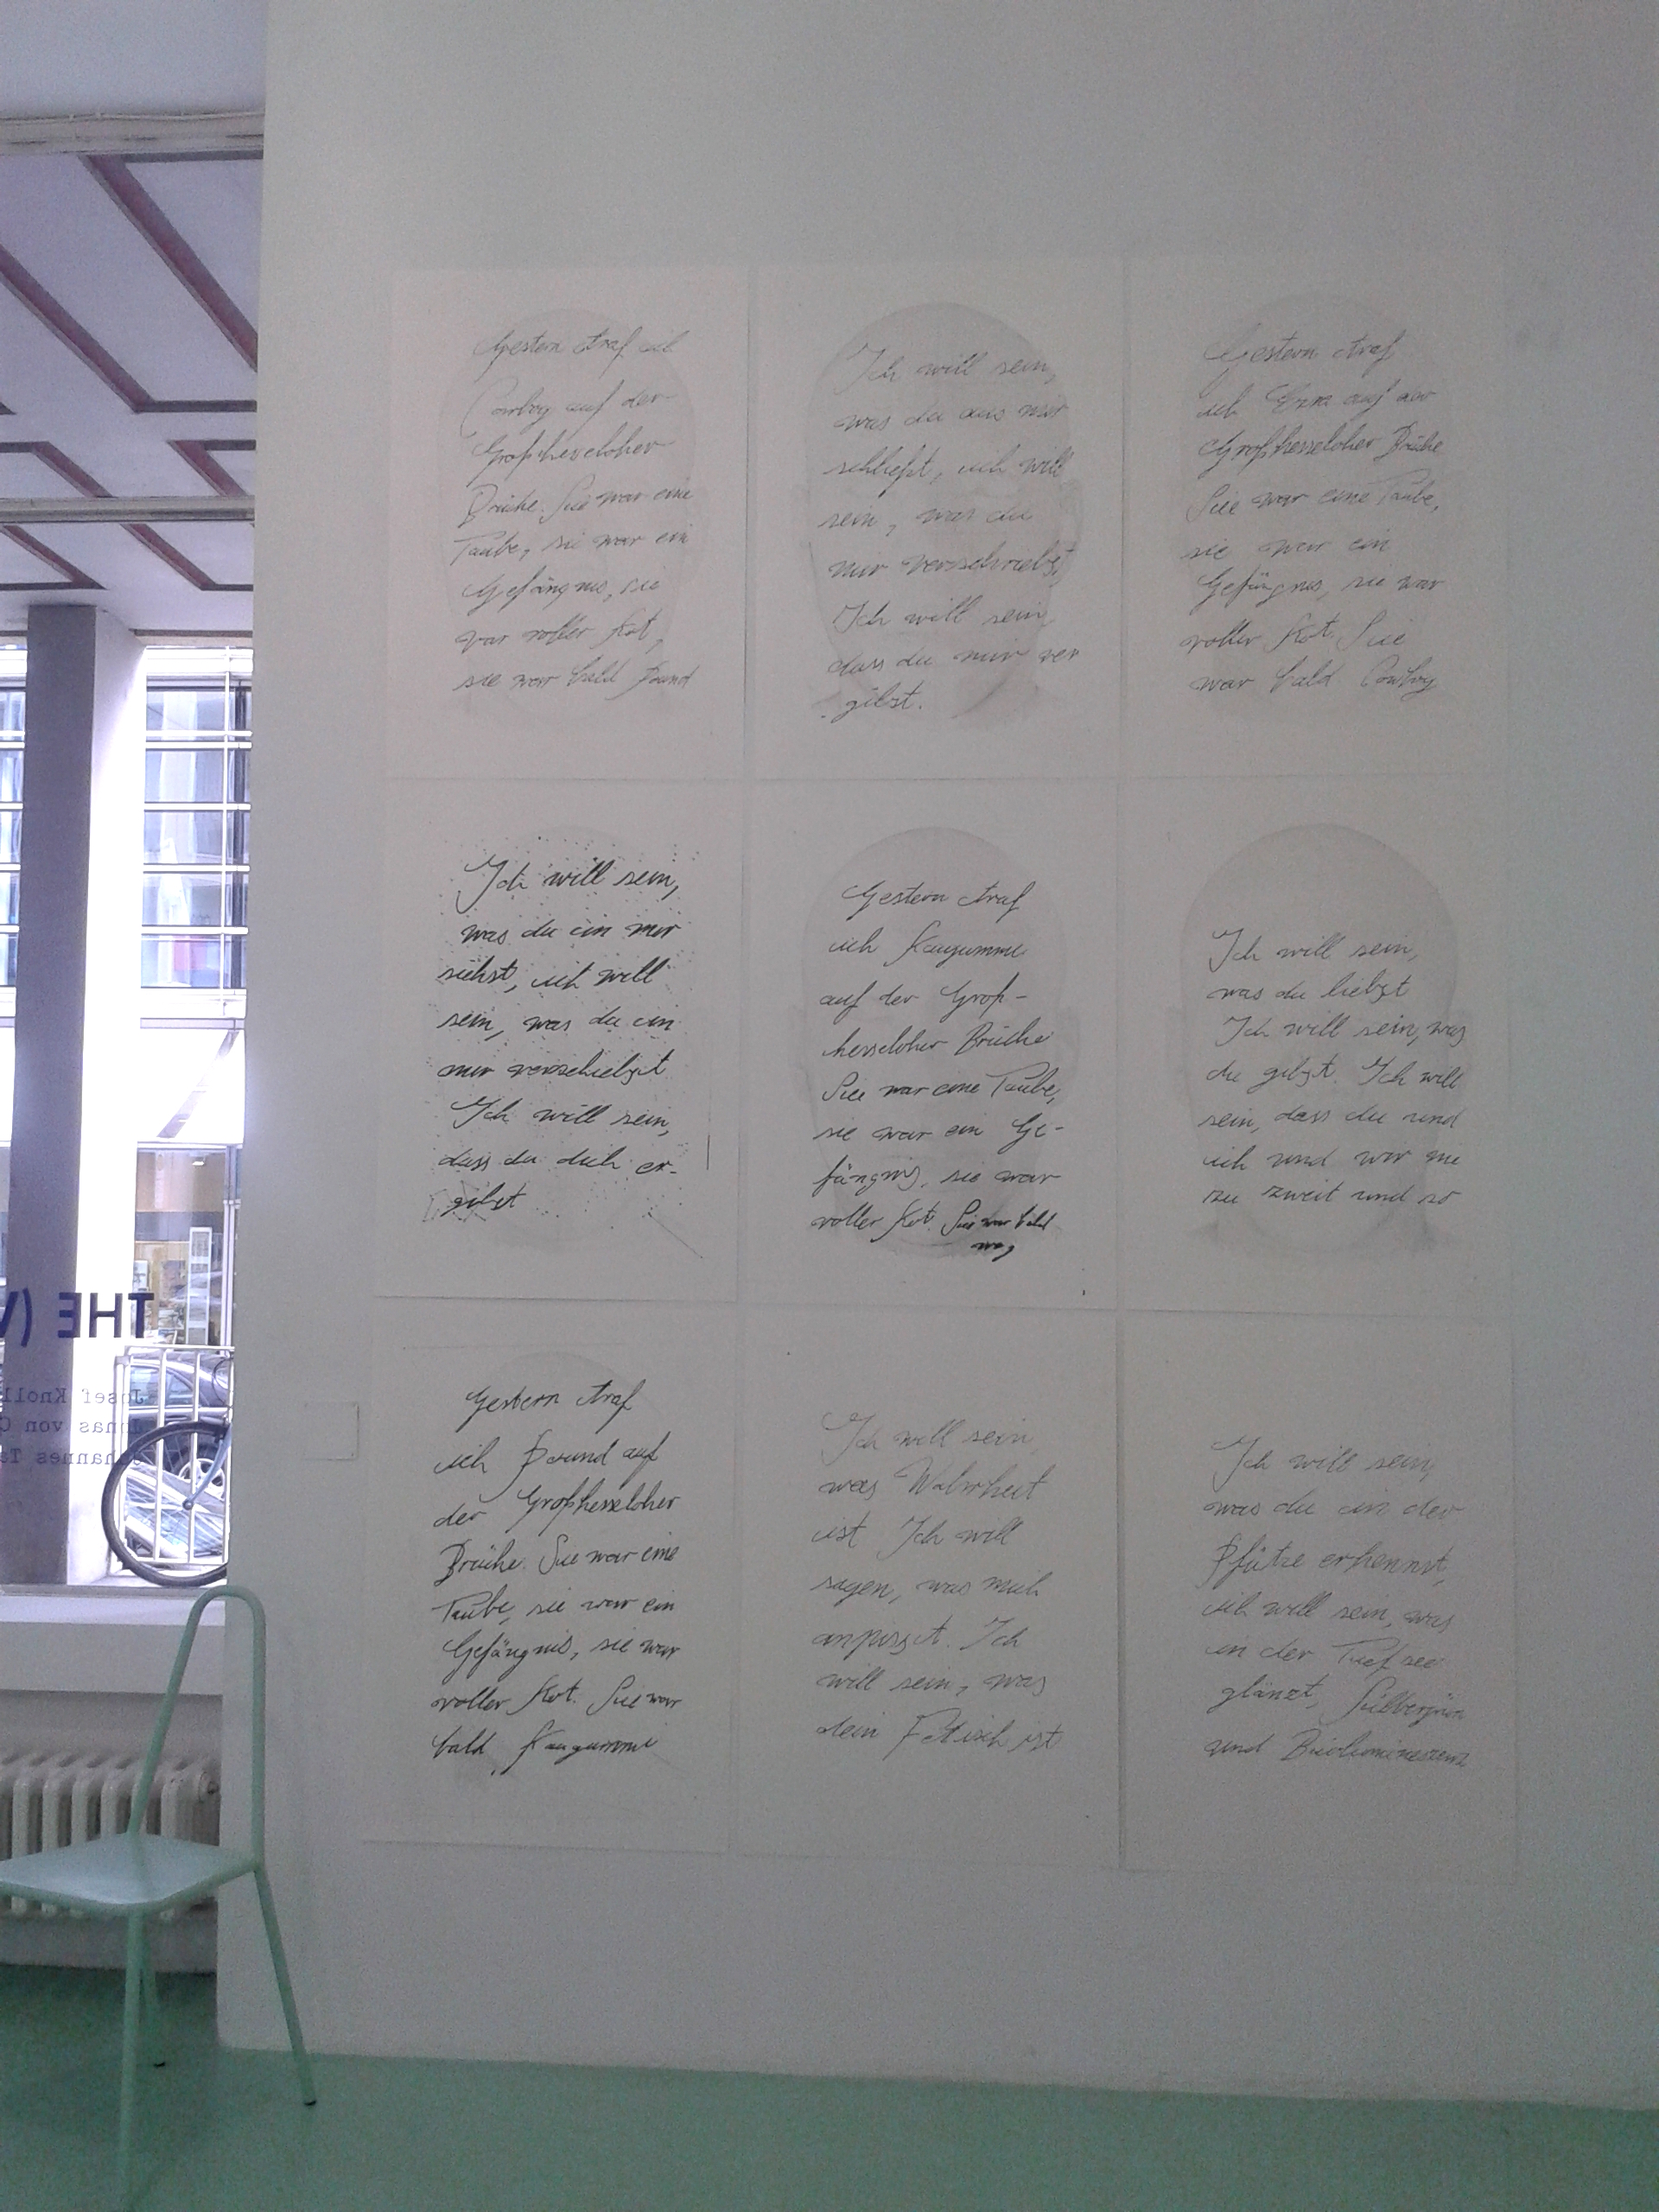 Gestern traf ich
Cowboy auf der
Großhesseloher
Brücke. Sie war eine
Taube, sie war ein
Gefängnis, sie
war voller Kot,
sie war bald Pound
Ich will sein,
was du aus mir
schließt, ich will
sein, was du
mir verschriebst,
Ich will sein,
dass du mir ver
gibst.
Gestern traf
ich Ezra auf der
Großhesseloher Brücke
Sie war eine Taube,
sie war ein
Gefängnis, sie war
voller Kot. Sie
war bald Cowboy
Ich will sein,
was du in mir
siehst, ich will
sein, was du in
mir verschiebst
Ich will sein,
dass du dich er-
gibst
Gestern traf
ich Kaugummi
auf der Groß-
hesseloher Brücke
Sie war eine Taube,
sie war ein Ge-
fängnis, sie war
voller Kot. Sie war bald
weg
Ich will sein,
was du liebst
Ich will sein, was
du gibst. Ich will
sein, dass du und
ich und wir nie
zu zweit und so
Gestern traf
ich Pound auf
der Großhesseloher
Brücke. Sie war eine
Taube, sie war ein
Gefängnis, sie war
voller Kot. Sie war
bald Kaugummi
Ich will sein
was Wahrheit
ist Ich will
sagen, was mich
anpisst. Ich
will sein, was
dein Fetisch ist
Ich will sein,
was du in der
Pfütze erkennst,
ich will sein, was
in der Tiefsee
glänzt,
und Biolumineszenz
THE (V
Josef Knoll
Jonas von
Johannes Te